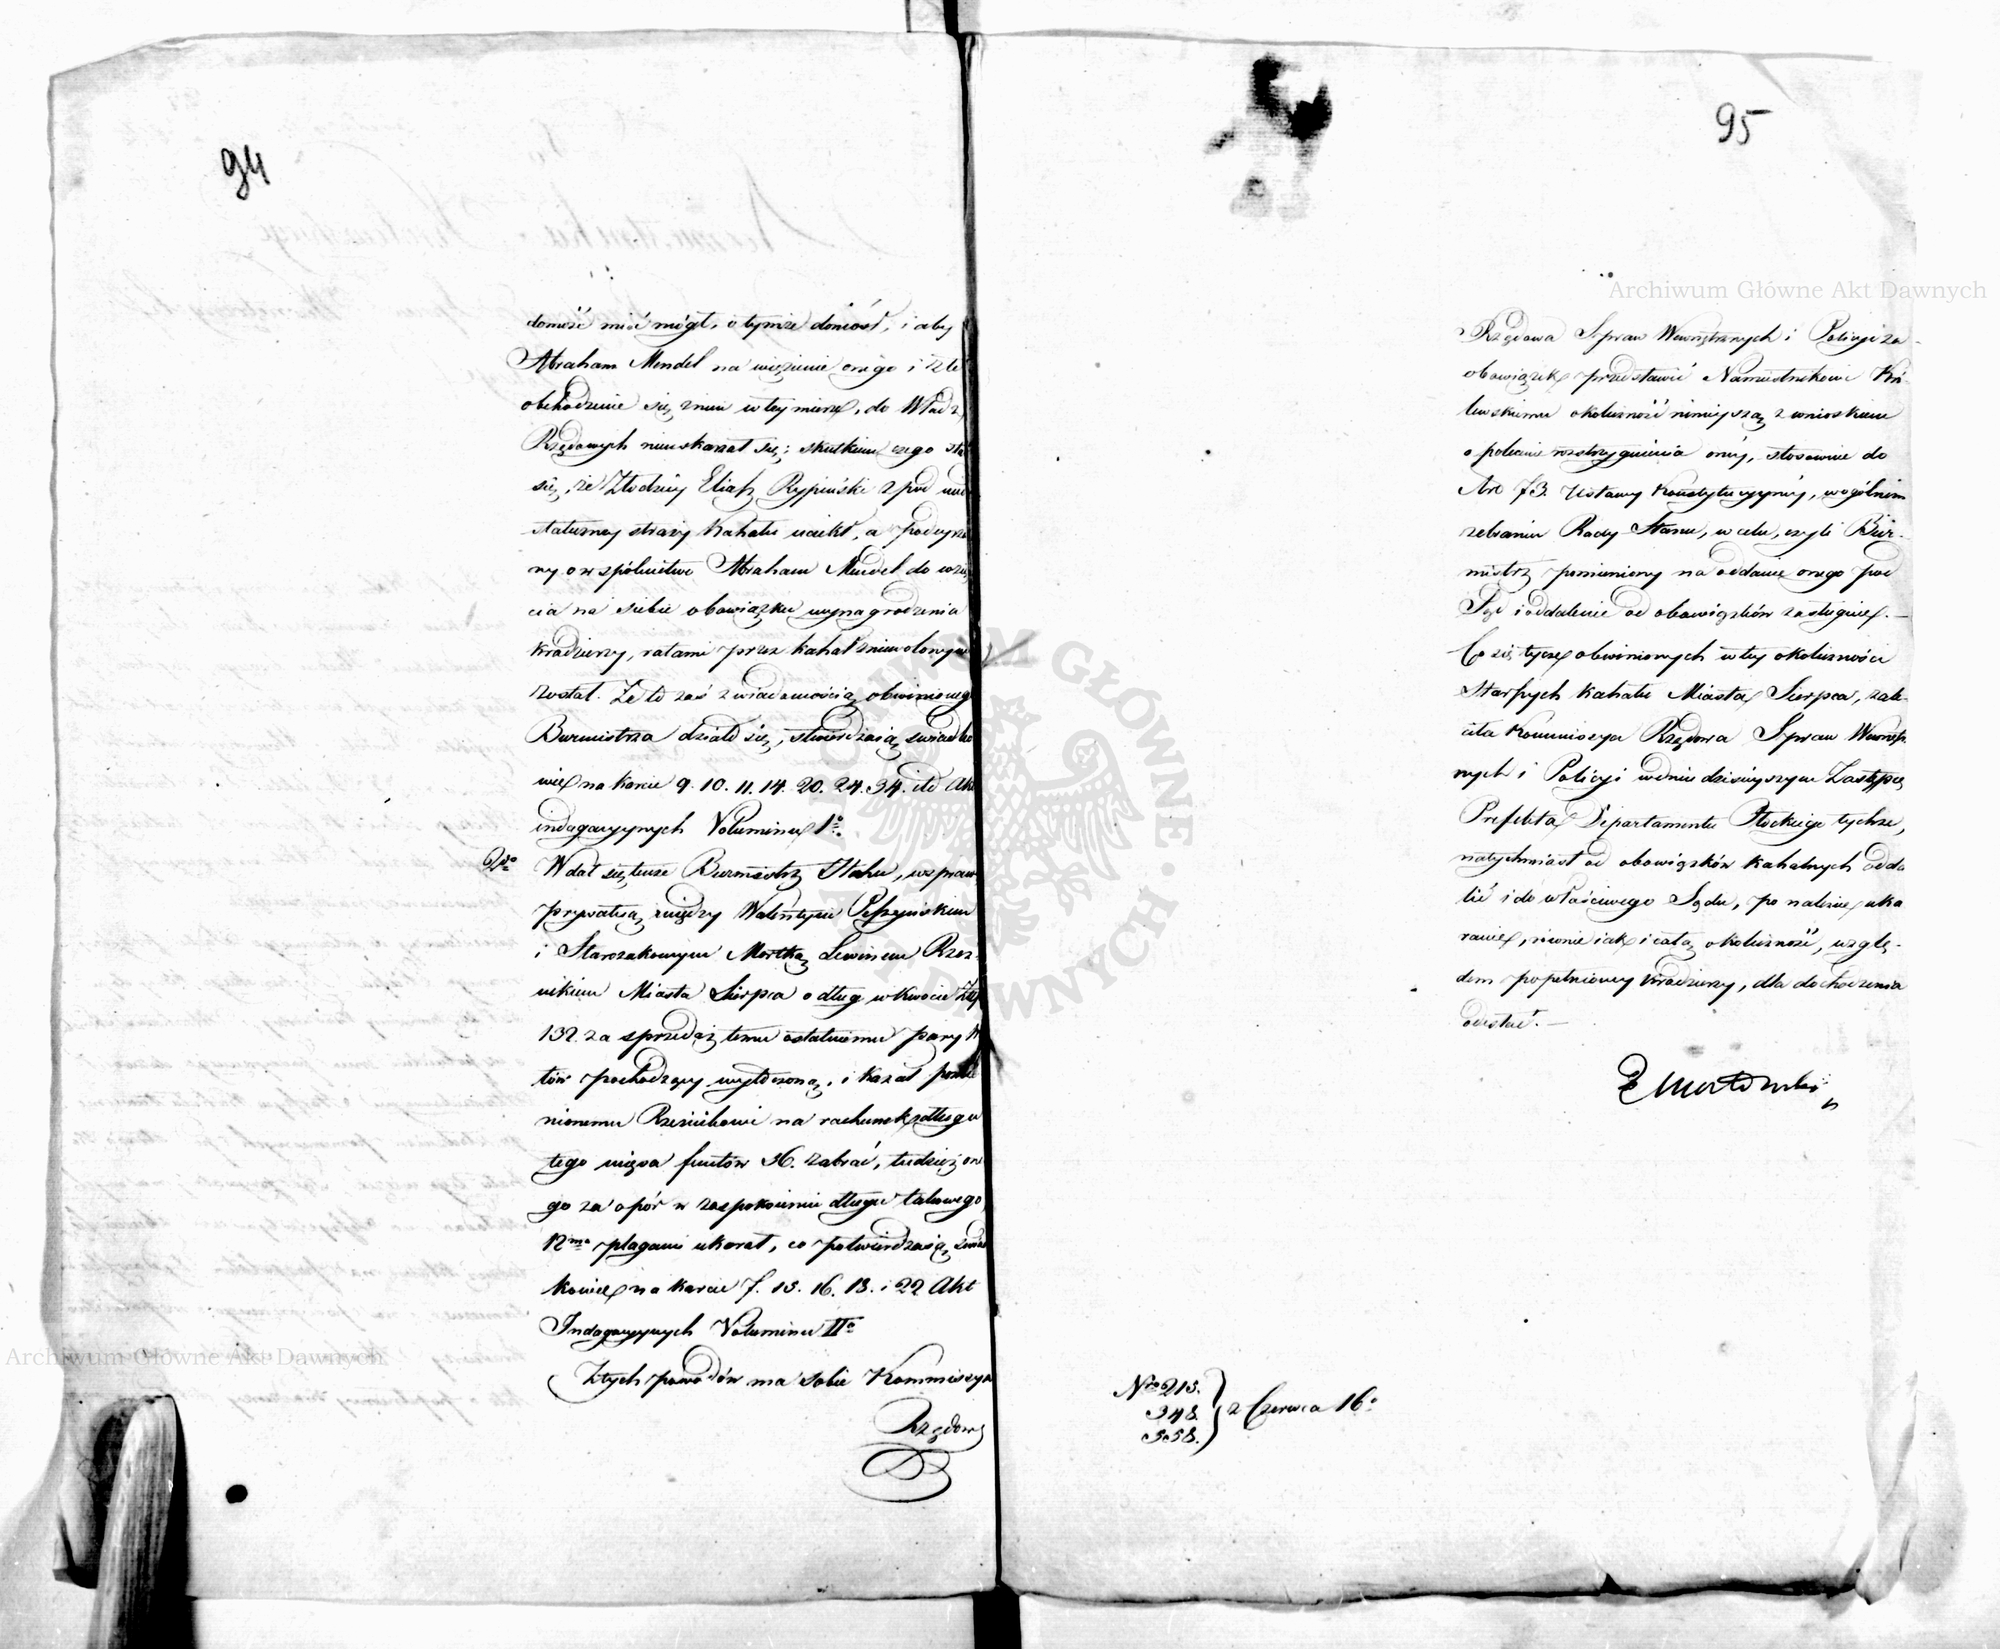 94
domość mieć mógł, o tymże doniósł, i aby
Abraham Mendel na więzienie onego i złe
obchodzenie się z nim w tey mierze, do Władz
Rządowych nieuskarżał się; skutkiem czego sta
się, że Złodziey Eliasz Rypiński z pod nie
statuney straży Kahału uciekł, a podeyrza
ny o wspólnictwo Abraham Mendel do wzię
cia na siebie obowiązku wynagrodzenia
kradzieży, ratami przez kahał zniewolonym
został. Że to zaś z wiadomością obwinionego
Burmistrza działo się, stwierdzaią świadko
wie na karcie 9. 10. 11. 14. 20. 24. 34. itd Akt
indagacyynych Voluminu Iº.
2do Wdał się tenże Burmistrz Stahu, w spraw
prywatną między Walentym Pełszyńskim
i Starozakonnym Mortką Lewinem Rzez-
nikiem Miasta Sierpca o dług w kwocie Złp
132. za sprzedaż temu ostatniemu pary
tów pochodzący wytoczoną, i kazał pomie
nionemu Rzeźnikowi na rachunek długu
tego mięsa funtów 36. zabrać, tudzież one
go za opór w zaspokoieniu długu takowego
12ma plagami ukarał, co potwierdzaią świad
kowie na karcie 7. 15. 16. 18. i 22 Akt
Indagacyynych Voluminu IIº
Z tych powodów ma sobie Kommissya
Rządowa
95
Rządowa Spraw Wewnętrznych i Policyi za
obowiązek przedstawić Namiestnikowi Kró-
lewskiemu okoliczność ninieyszą z wnioskiem
o polecenie rozstrzygnienia oney, stosownie do
Art 73. Ustawy Konstytucyyney, w ogólnem
zebraniu Rady Stanu, w celu, czyli Bur-
mistrz pomieniony na oddanie onego pod
Sąd i oddalenie od obowiązków zasługuie. —
Co się tycze obwinionych w tey okoliczności
Starszych Kahału Miasta Sierpca, zale-
ciła Kommissya Rządowa Spraw Wewnętrz
nych i Policyi w dniu dzisieyszym Zastępcy
Prefekta Departamentu Płockiego tychże,
natychmiast od obowiązków kahalnych odda
lić i do właściwego Sądu, po należne uka
ranie, równie iak i całą okoliczność, wzglę-
dem popełnioney kradzieży, dla dochodzenia
odesłać. —
Nro 215.
348.
358. } z Czerwca 16º
Archiwum Główne Akt Dawnych
Archiwum Główne Akt Dawnych
ARCHIWUM GŁÓWNE AKT DAWNYCH